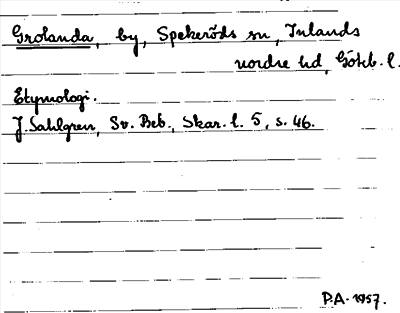 Grolanda, by, Spekeröds sn, Inlands
nordre hd, Göteb. l.
Etymologi.
J. Sahlgren, Sv. Beb., Skar. l. 5, s. 46.
P.A. 1957.